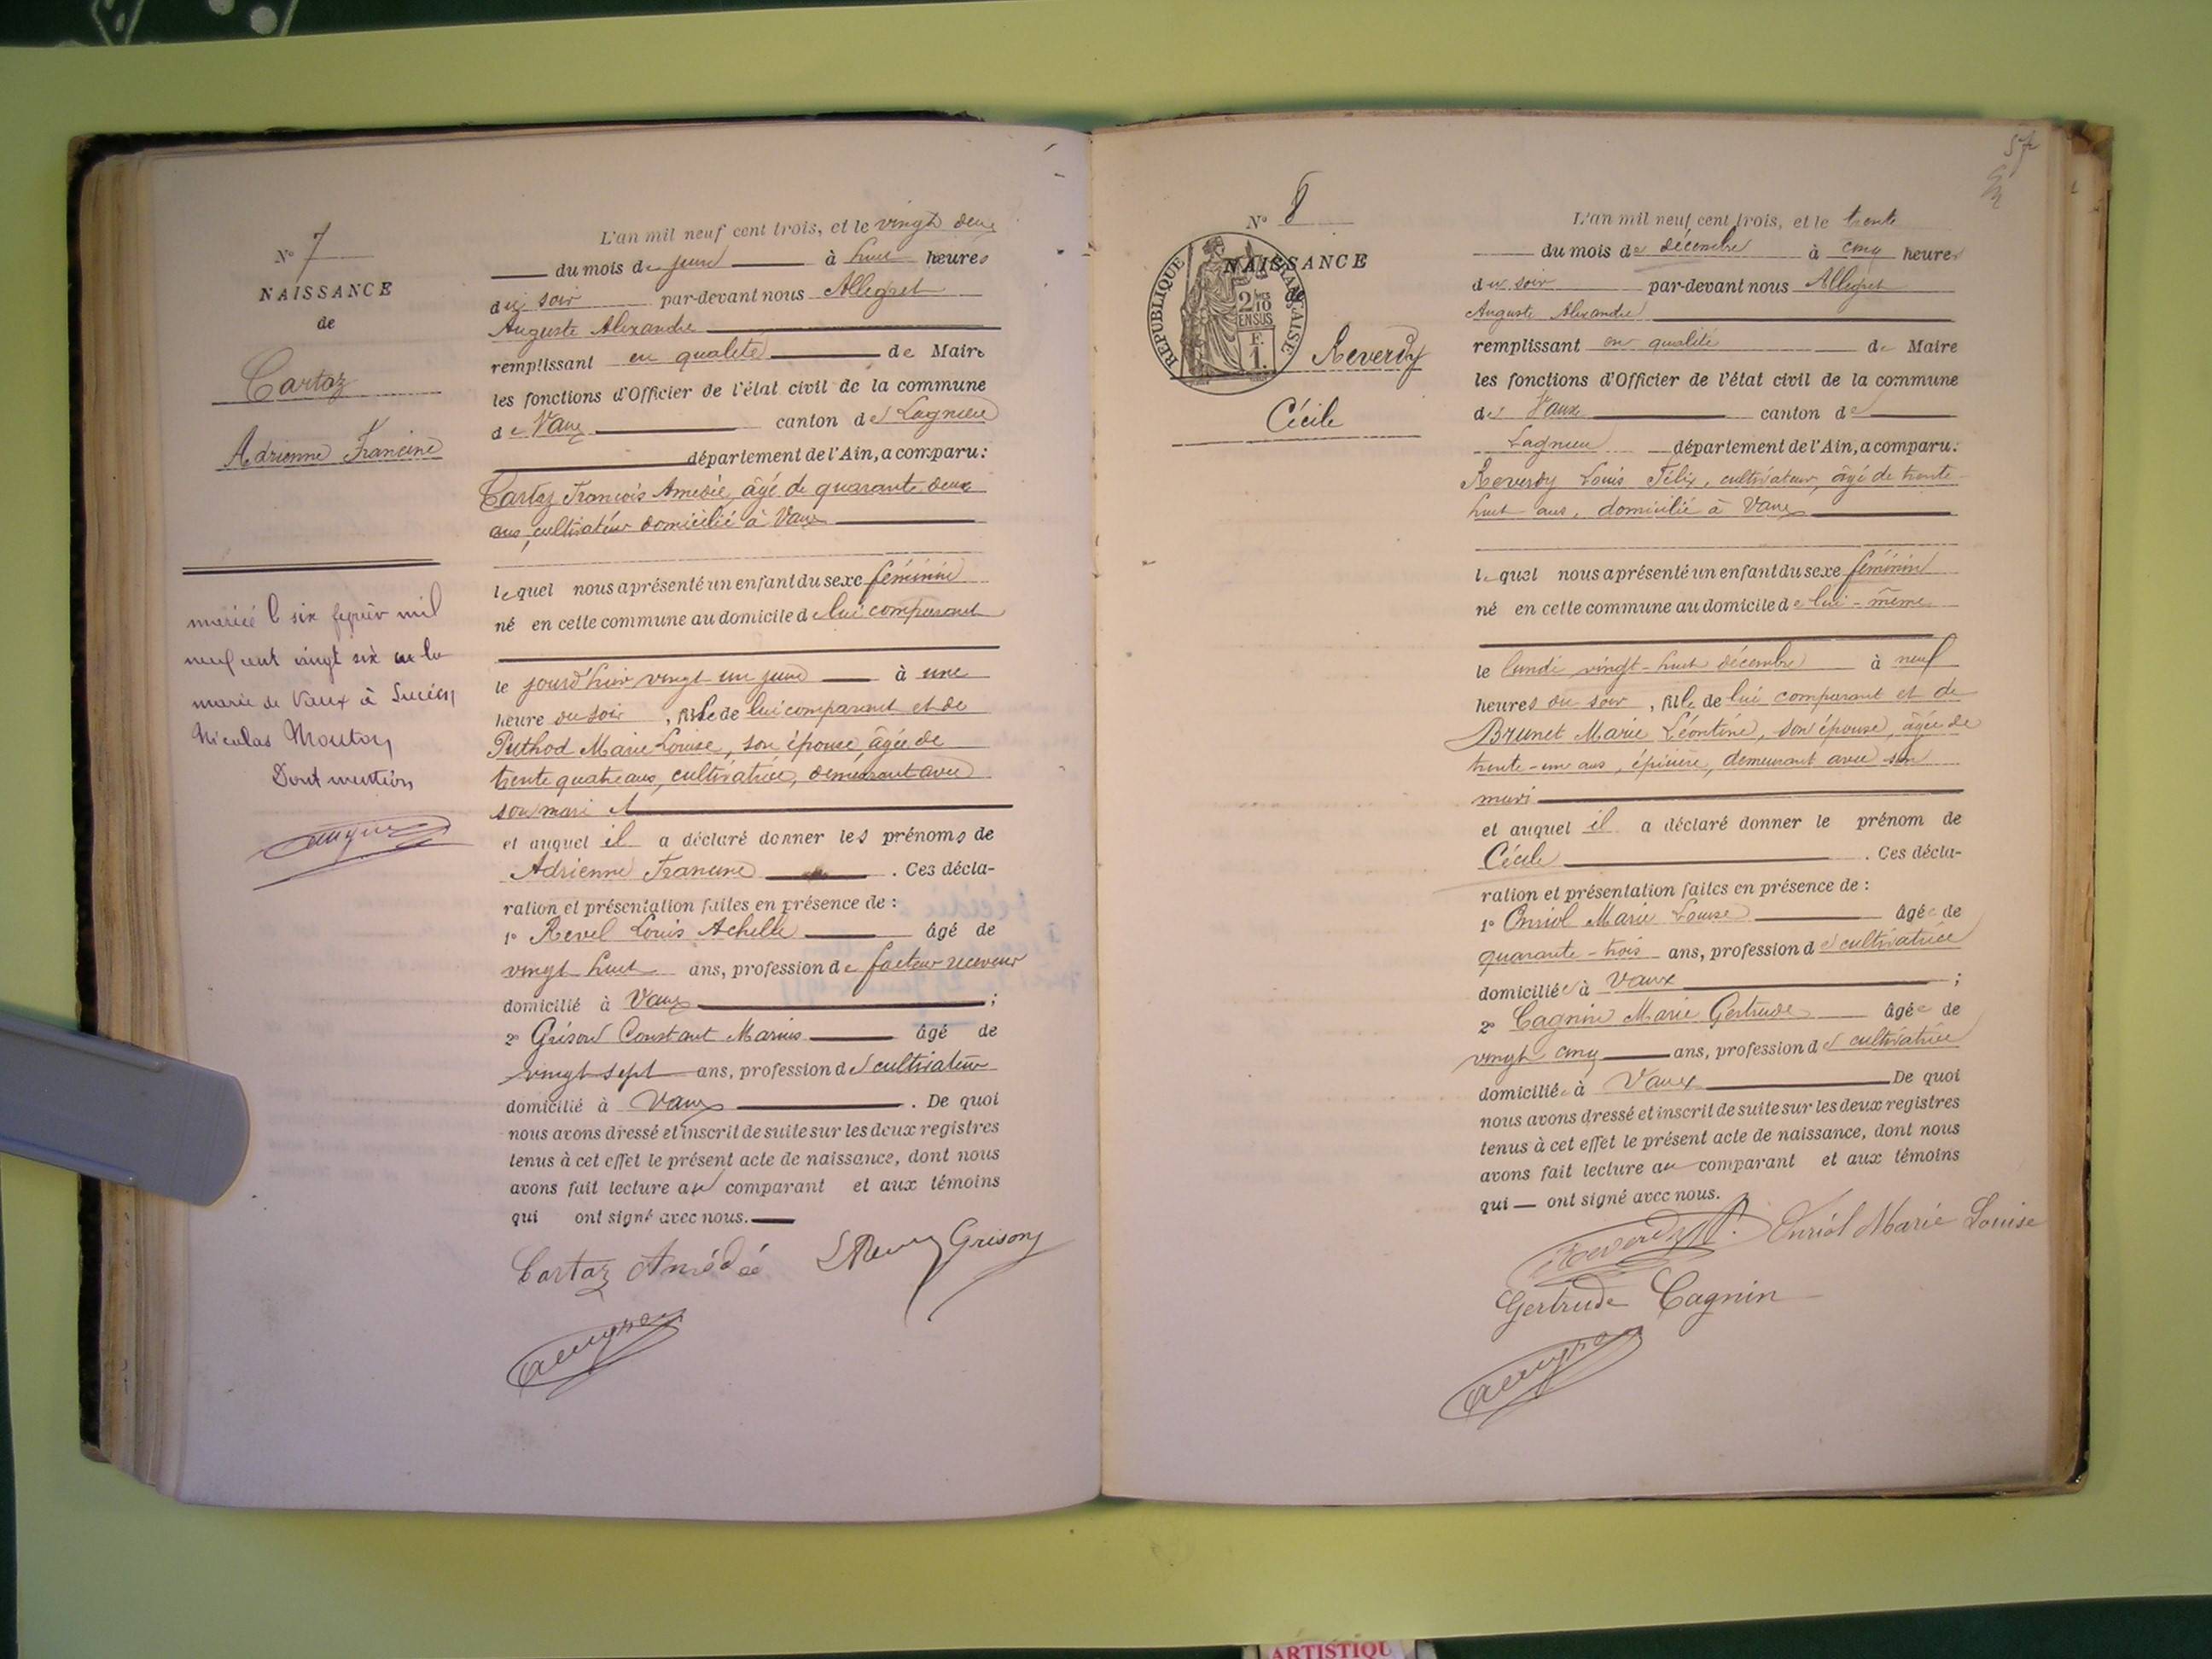 N° 7
NAISSANCE
de
Cartaz
Adrienne Francine
mariée le six février mil
neuf cent vingt six en la
mairie de Vaux à Lucien
Nicolas Mouton
Dont mention
L'an mil neuf cent trois, et le vingt deux
du mois de juin à huit heures
du soir par-devant nous Allegret
Auguste Alexandre
remplissant en qualité de Maire
les fonctions d'Officier de l'état civil de la commune
de Vaux canton de Lagnieu
département de l'Ain, a comparu:
Cartaz François Amédée, âgé de quarante deux
ans, cultivateur domicilié à Vaux
lequel nous a présenté un enfant du sexe féminin
né en cette commune au domicile de lui comparant
le jourd'hier vingt un juin à une
heure du soir, fille de lui comparant et de
Puthod Marie Louise, son épouse, âgée de
trente quatre ans, cultivatrice, demeurant avec
son mari
et auquel il a déclaré donner les prénoms de
Adrienne Francine. Ces décla-
ration et présentation faites en présence de :
1° Revel Louis Achille âgé de
vingt huit ans, profession de facteur receveur
domicilié à Vaux ;
2° Grison Constant Marius âgé de
vingt sept ans, profession de cultivateur
domicilié à Vaux. De quoi
nous avons dressé et inscrit de suite sur les deux registres
tenus à cet effet le présent acte de naissance, dont nous
avons fait lecture au comparant et aux témoins
qui ont signé avec nous.
Cartaz Amédée Grison
57
N° 8
NAISSANCE
de
RÉPUBLIQUE FRANÇAISE
2/10 EN SUS
F.
1.
Reverdy
Cécile
L'an mil neuf cent trois, et le trente
du mois de décembre à cinq heures
du soir par-devant nous Allegret
Auguste Alexandre
remplissant en qualité de Maire
les fonctions d'Officier de l'état civil de la commune
de Vaux canton de
Lagnieu département de l'Ain, a comparu:
Reverdy Louis Félix, cultivateur, âgé de trente
huit ans, domicilié à Vaux
lequel nous a présenté un enfant du sexe féminin
né en cette commune au domicile de lui-même
le lundi vingt-huit décembre à neuf
heures du soir, fille de lui comparant et de
Brunet Marie Léontine, son épouse, âgée de
trente-un ans, épicière, demeurant avec son
mari
et auquel il a déclaré donner le prénom de
Cécile. Ces décla-
ration et présentation faites en présence de :
1° Curiol Marie Louise âgée de
quarante-trois ans, profession de cultivatrice
domiciliée à Vaux ;
2° Cagnin Marie Gertrude âgée de
vingt cinq ans, profession de cultivatrice
domiciliée à Vaux De quoi
nous avons dressé et inscrit de suite sur les deux registres
tenus à cet effet le présent acte de naissance, dont nous
avons fait lecture au comparant et aux témoins
qui — ont signé avec nous.
Reverdy Curiol Marie Louise
Gertrude Cagnin
ARTISTIQU